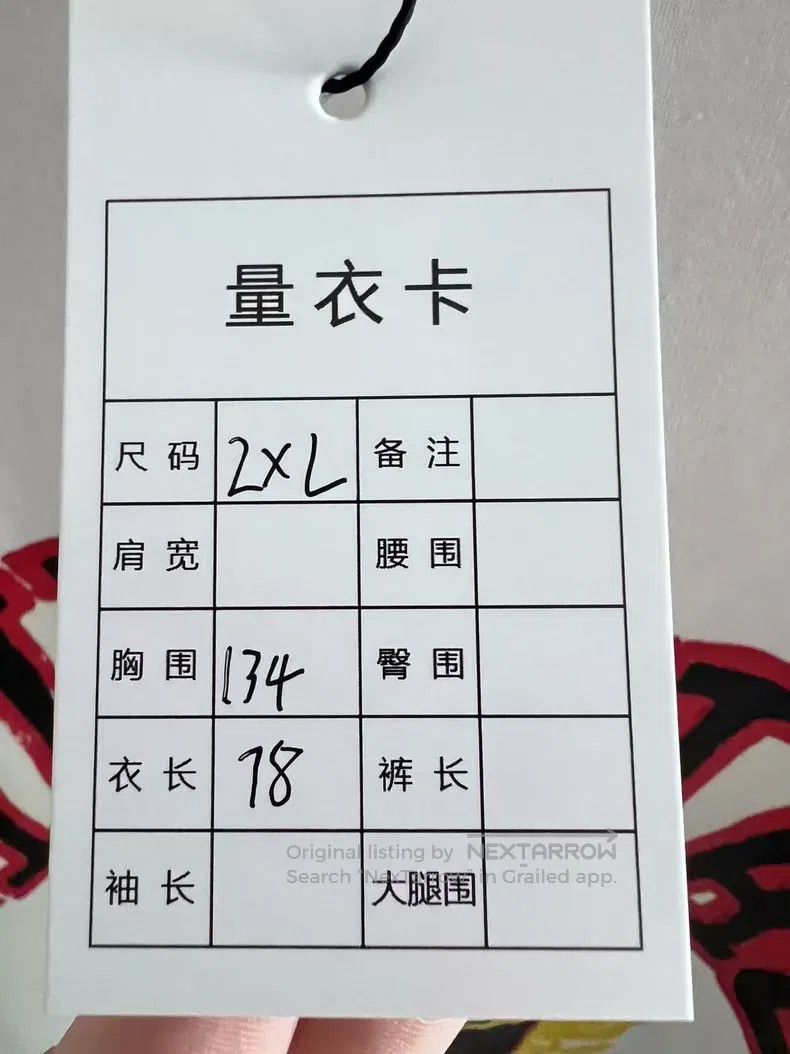 量衣卡
尺码 2XL 备注
肩宽 腰围
胸围 134 臀围
衣长 78 裤长
Original listing by NEXTARROW
Search "NexTarrow" in Grailed app.
袖长 大腿围